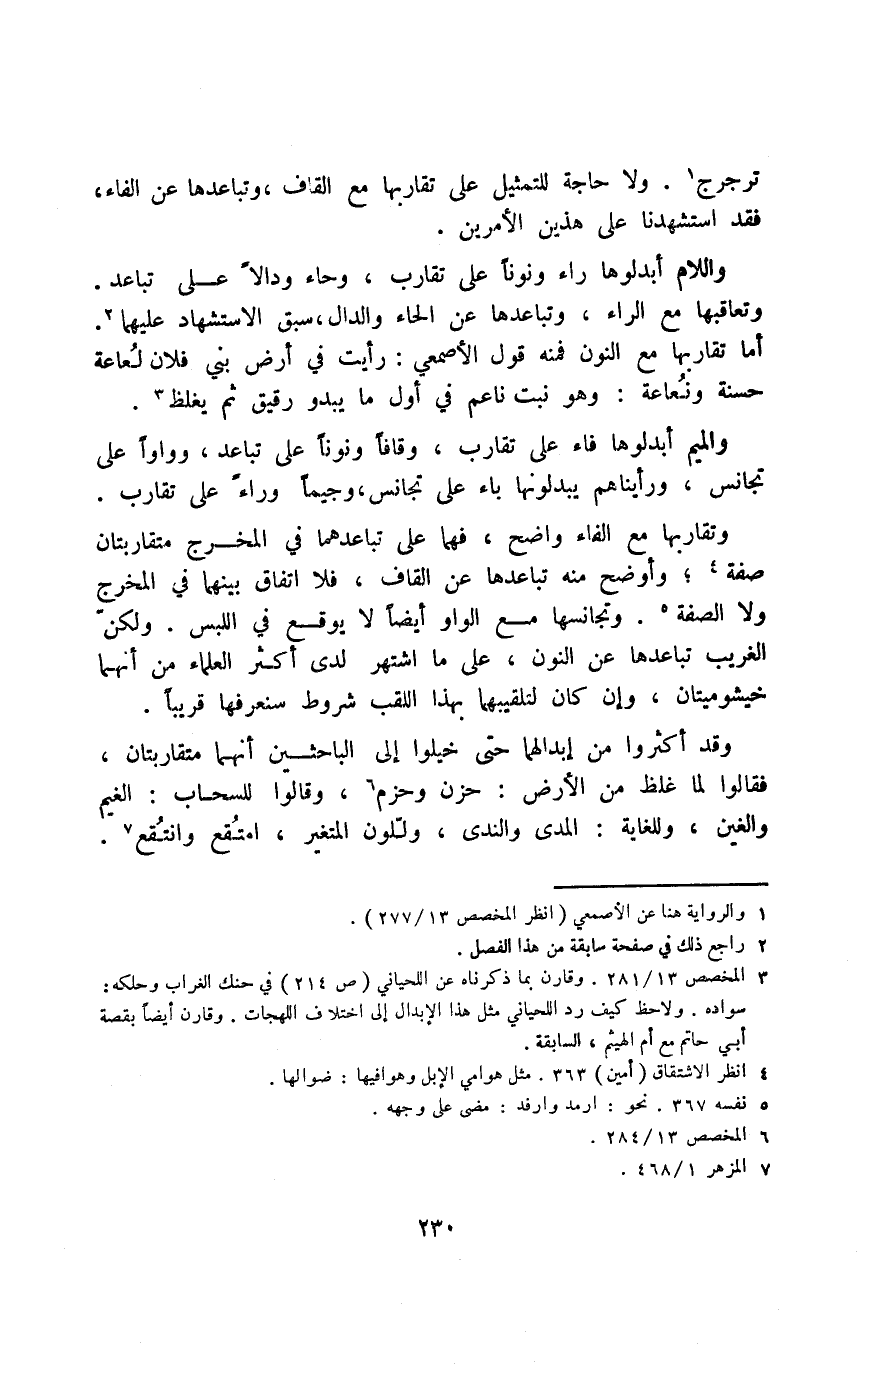 ترجرج١ . ولا حاجة للتمثيل على تقاربها مع القاف ،وتباعدها عن الفاء،
فقد استشهدنا على هذين الأمرين .
واللام أبدلوها راء ونوناً على تقارب ، وحاء ودالاً على تباعد .
وتعاقبها مع الراء ، وتباعدها عن الحاء والدال،سبق الاستشهاد عليهما٢.
أما تقاربها مع النون فمنه قول الأصمعي : رأيت في أرض بني فلان لُعاعة
حسنة ونُعاعة : وهو نبت ناعم في أول ما يبدو رقيق ثم يغلظ٣ .
والميم أبدلوها فاء على تقارب ، وقافاً ونوناً على تباعد ، وواواً على
تجانس ، ورأيناهم يبدلونها باء على تجانس،وجيماً وراءً على تقارب .
وتقاربها مع الفاء واضح ، فهما على تباعدهما في المخرج متقاربتان
صفة٤ ؛ وأوضح منه تباعدها عن القاف ، فلا اتفاق بينهما في المخرج
ولا الصفة٥ . وتجانسها مع الواو أيضاً لا يوقع في اللبس . ولكنّ
الغريب تباعدها عن النون ، على ما اشتهر لدى أكثر العلماء من أنهما
خيشوميتان ، وإن كان لتلقيبهما بهذا اللقب شروط سنعرفها قريباً .
وقد أكثروا من إبدالها حتى خيلوا إلى الباحثين أنهما متقاربتان ،
فقالوا لما غلظ من الأرض : حزن وحزم٦ ، وقالوا للسحاب : الغيم
والغين ، وللغاية : المدى والندى ، وللّون المتغير ، امتُقع وانتُقع٧ .
١ والرواية هنا عن الأصمعي ( انظر المخصص ١٣/٢٧٧ ) .
٢ راجع ذلك في صفحة سابقة من هذا الفصل .
٣ المخصص ١٣/٢٨١ . وقارن بما ذكرناه عن اللحياني ( ص ٢١٤ ) في حنك الغراب وحلكه :
سواده . ولاحظ كيف رد اللحياني مثل هذا الإبدال إلى اختلاف اللهجات . وقارن أيضاً بقصة
أبي حاتم مع أم الهيثم ، السابقة .
٤ انظر الاشتقاق ( أمين ) ٣٦٣ . مثل هوامي الإبل وهوافيها : ضوالها .
٥ نفسه ٣٦٧ . نحو : ارمد وارقد : مضى على وجهه .
٦ المخصص ١٣/٢٨٤ .
٧ المزهر ١/٤٦٨ .
٢٣٠